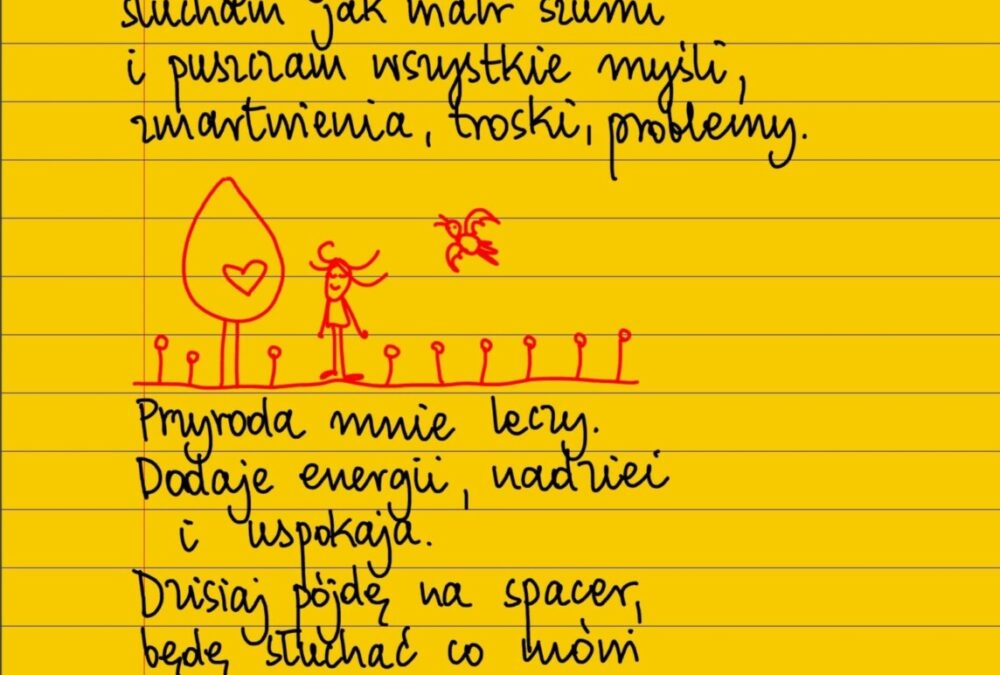 słucham jak wiatr szumi
i puszczam wszystkie myśli,
zmartwienia, troski, problemy.
Przyroda mnie leczy.
Dodaje energii, nadziei
i uspokaja.
Dzisiaj pójdę na spacer,
będę słuchać co mówi